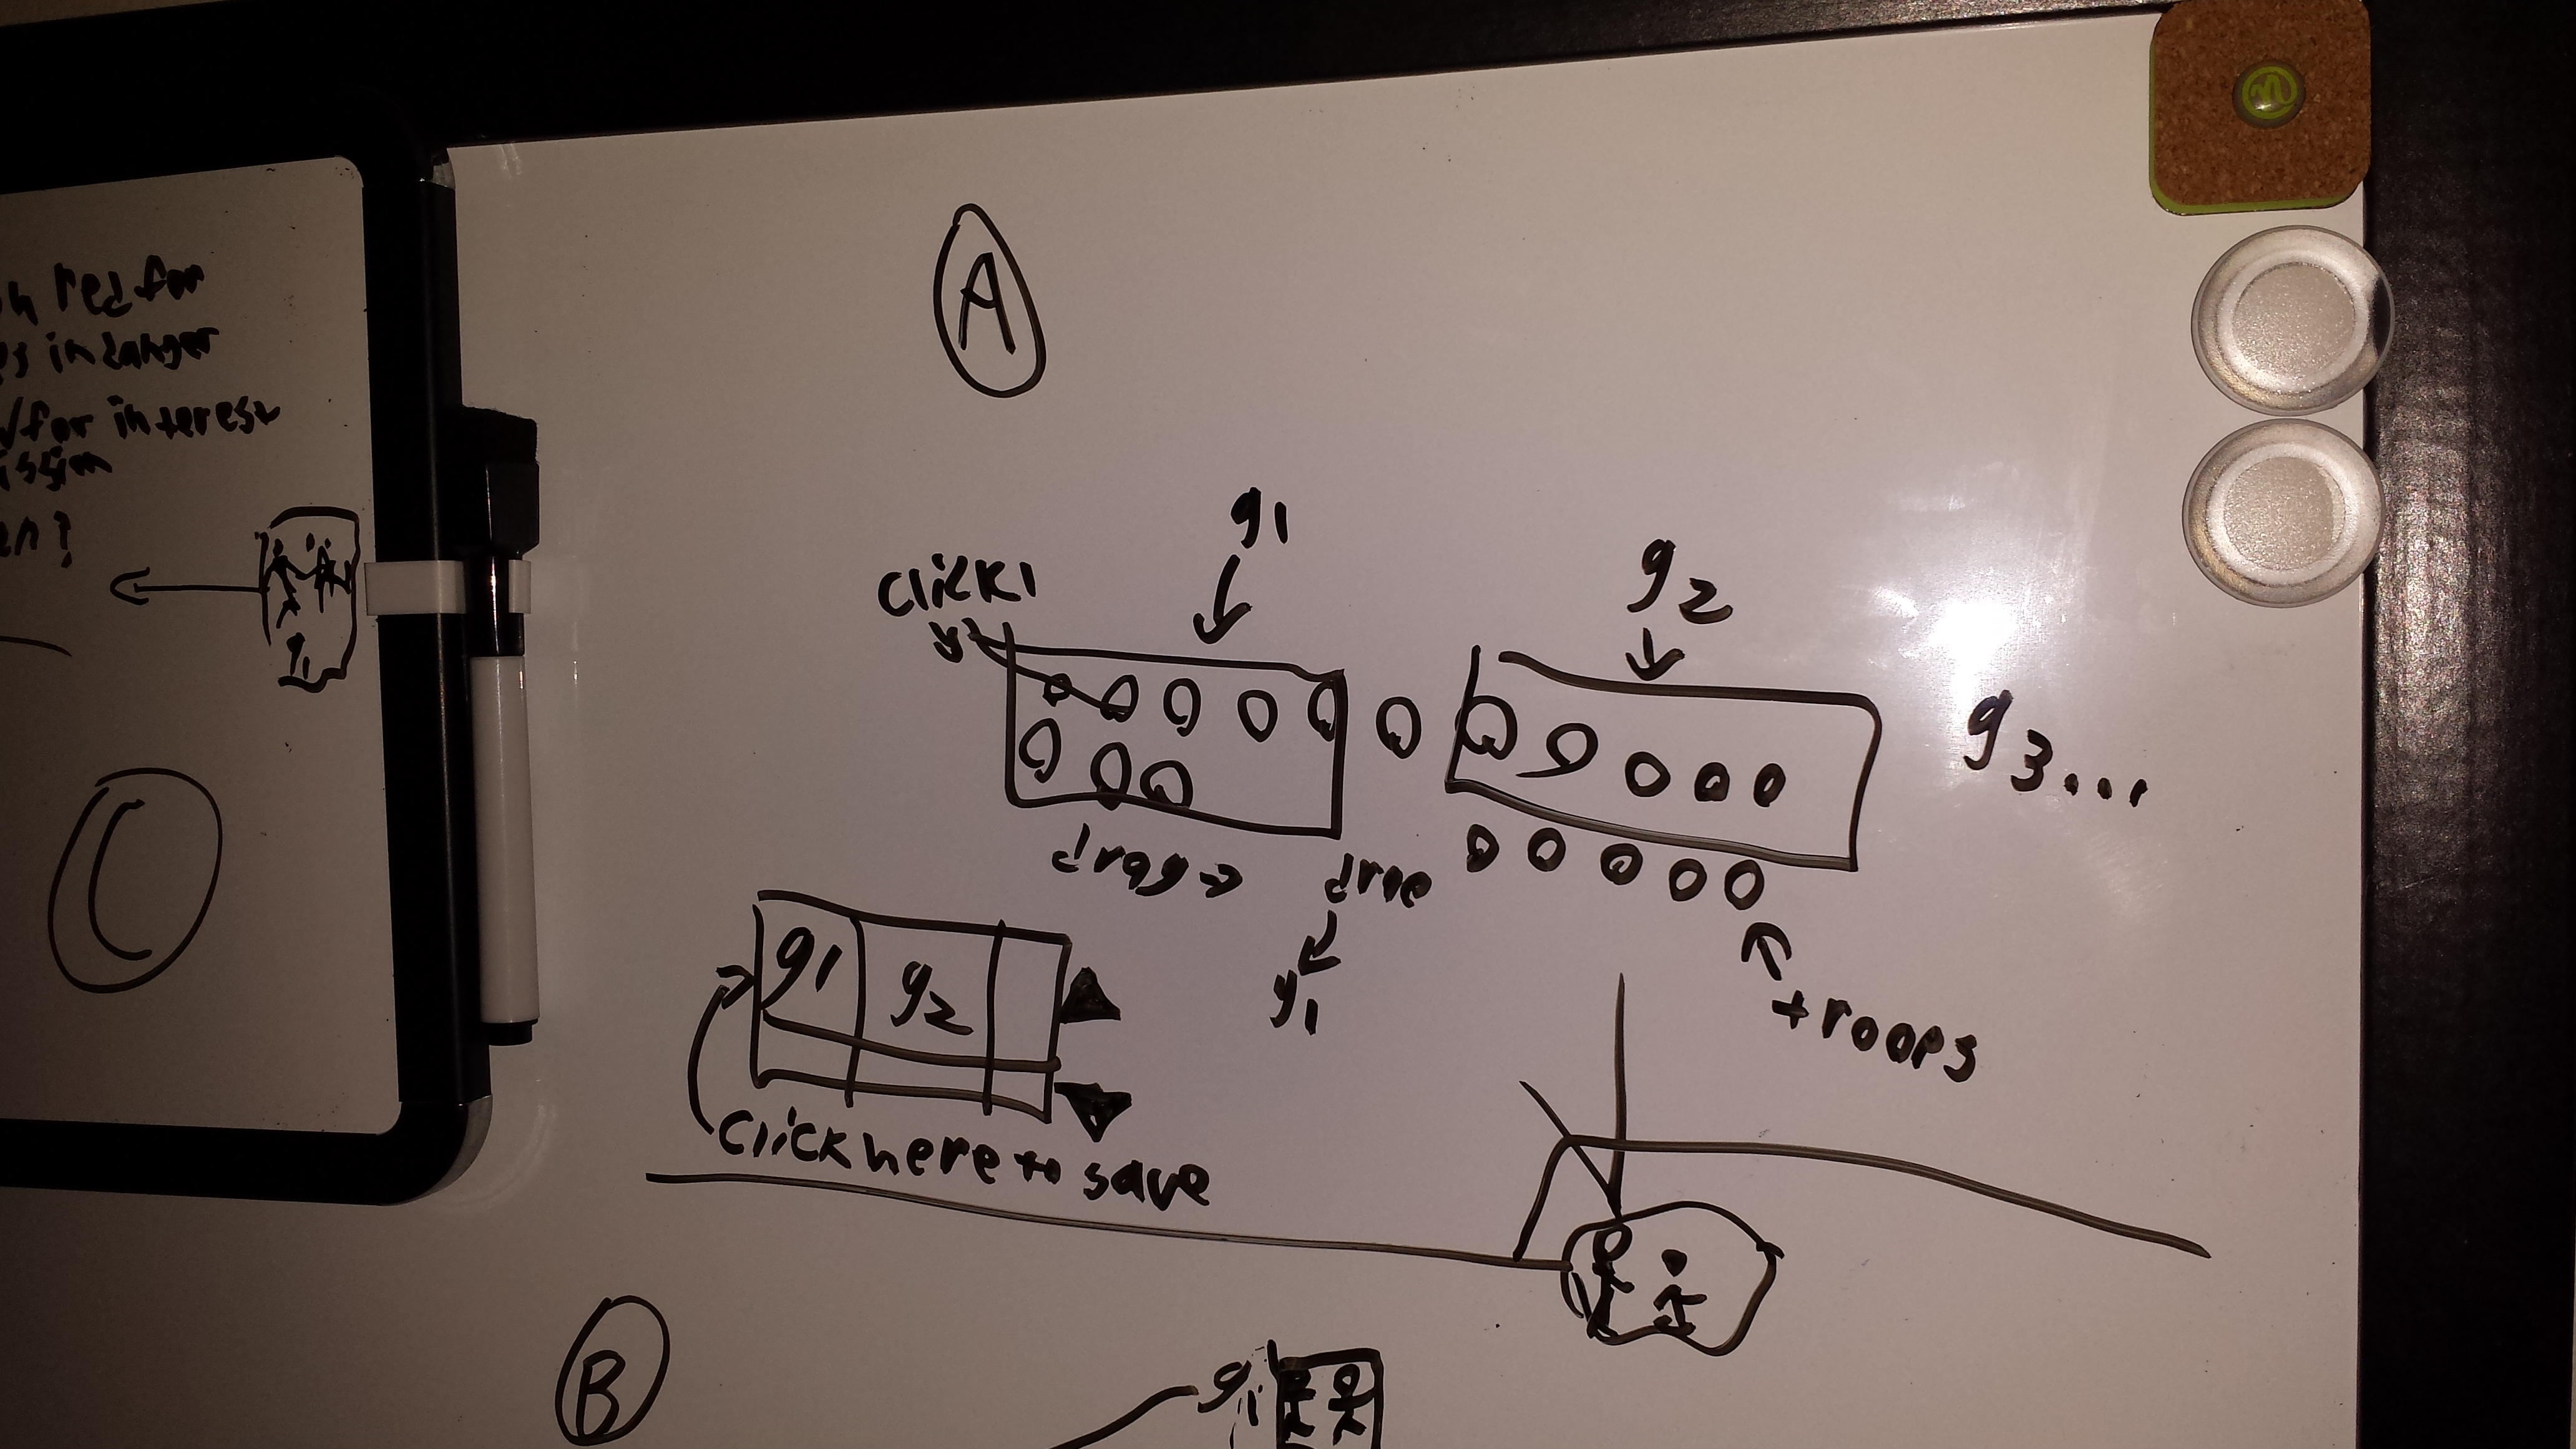 red for
in danger
/for interest
g1
C
A
g1
g2
click1
g3...
drag→
drop
g1
troops
g1 g2
click here to save
B
g1